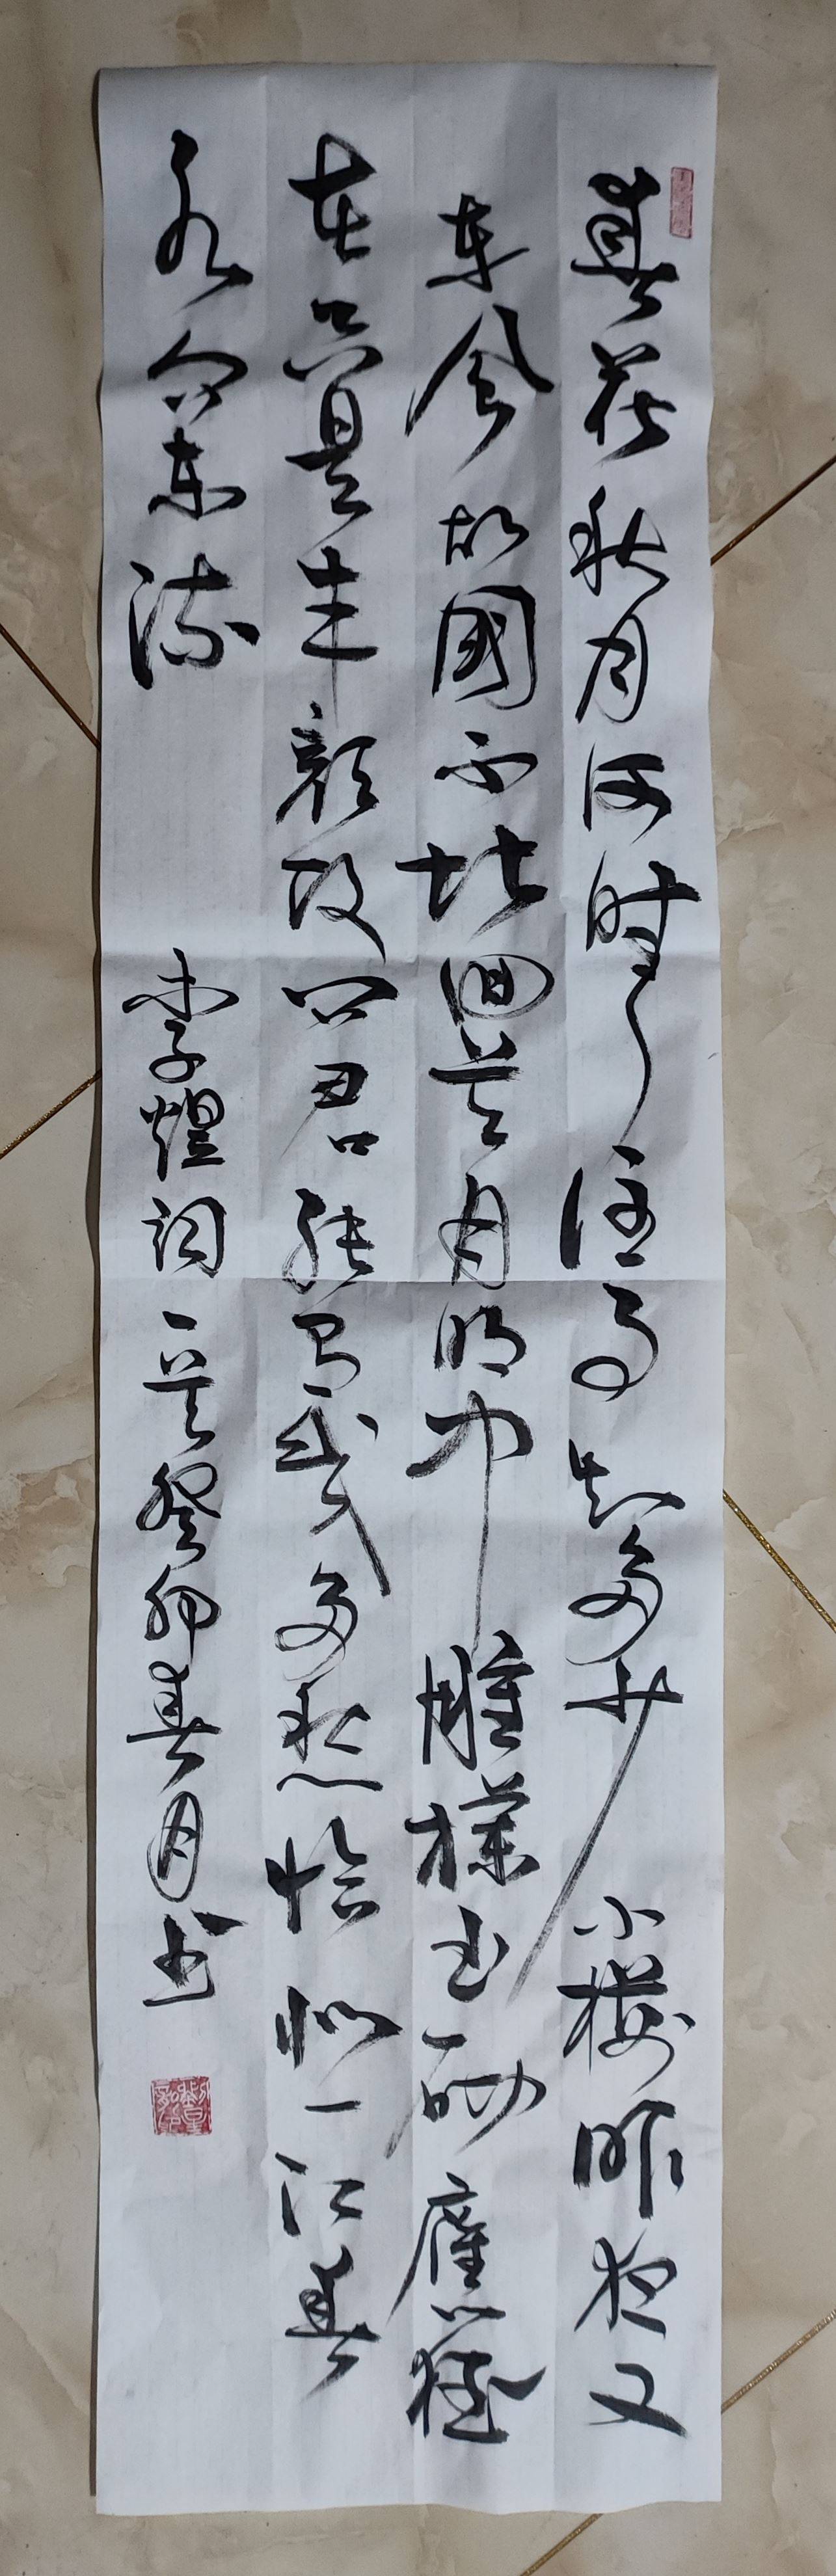 春花秋月何时了往事知多少小楼昨夜又
东风故國不堪回首月明中雕欄玉砌應猶
在只是朱颜改问君能有几多愁恰似一江春
水向东流 李煜词 癸卯春月书